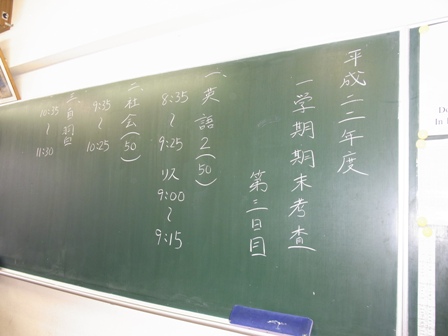 平成二二年度
一学期期末考査
第三日目
一、英語2(50)
8:35
〜
9:25
リス
9:00
〜
9:15
二、社会(50)
9:35
〜
10:25
三、自習
10:35
〜
11:30